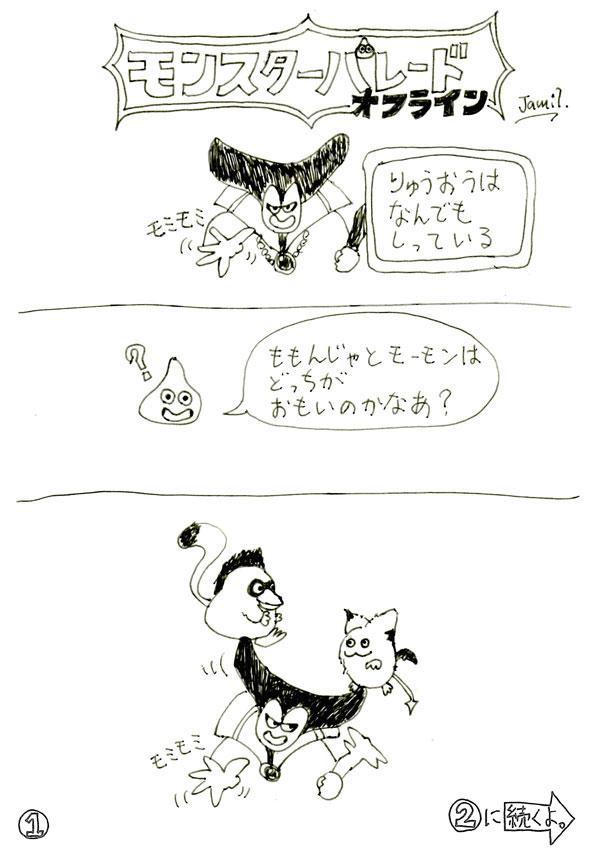 モンスターパレード
オフライン
Jamil.
モミモミ
りゅうおうは
なんでも
しっている
?
ももんじゃとモーモンは
どっちが
おもいのかなあ?
モミモミ
①
②に続くよ。